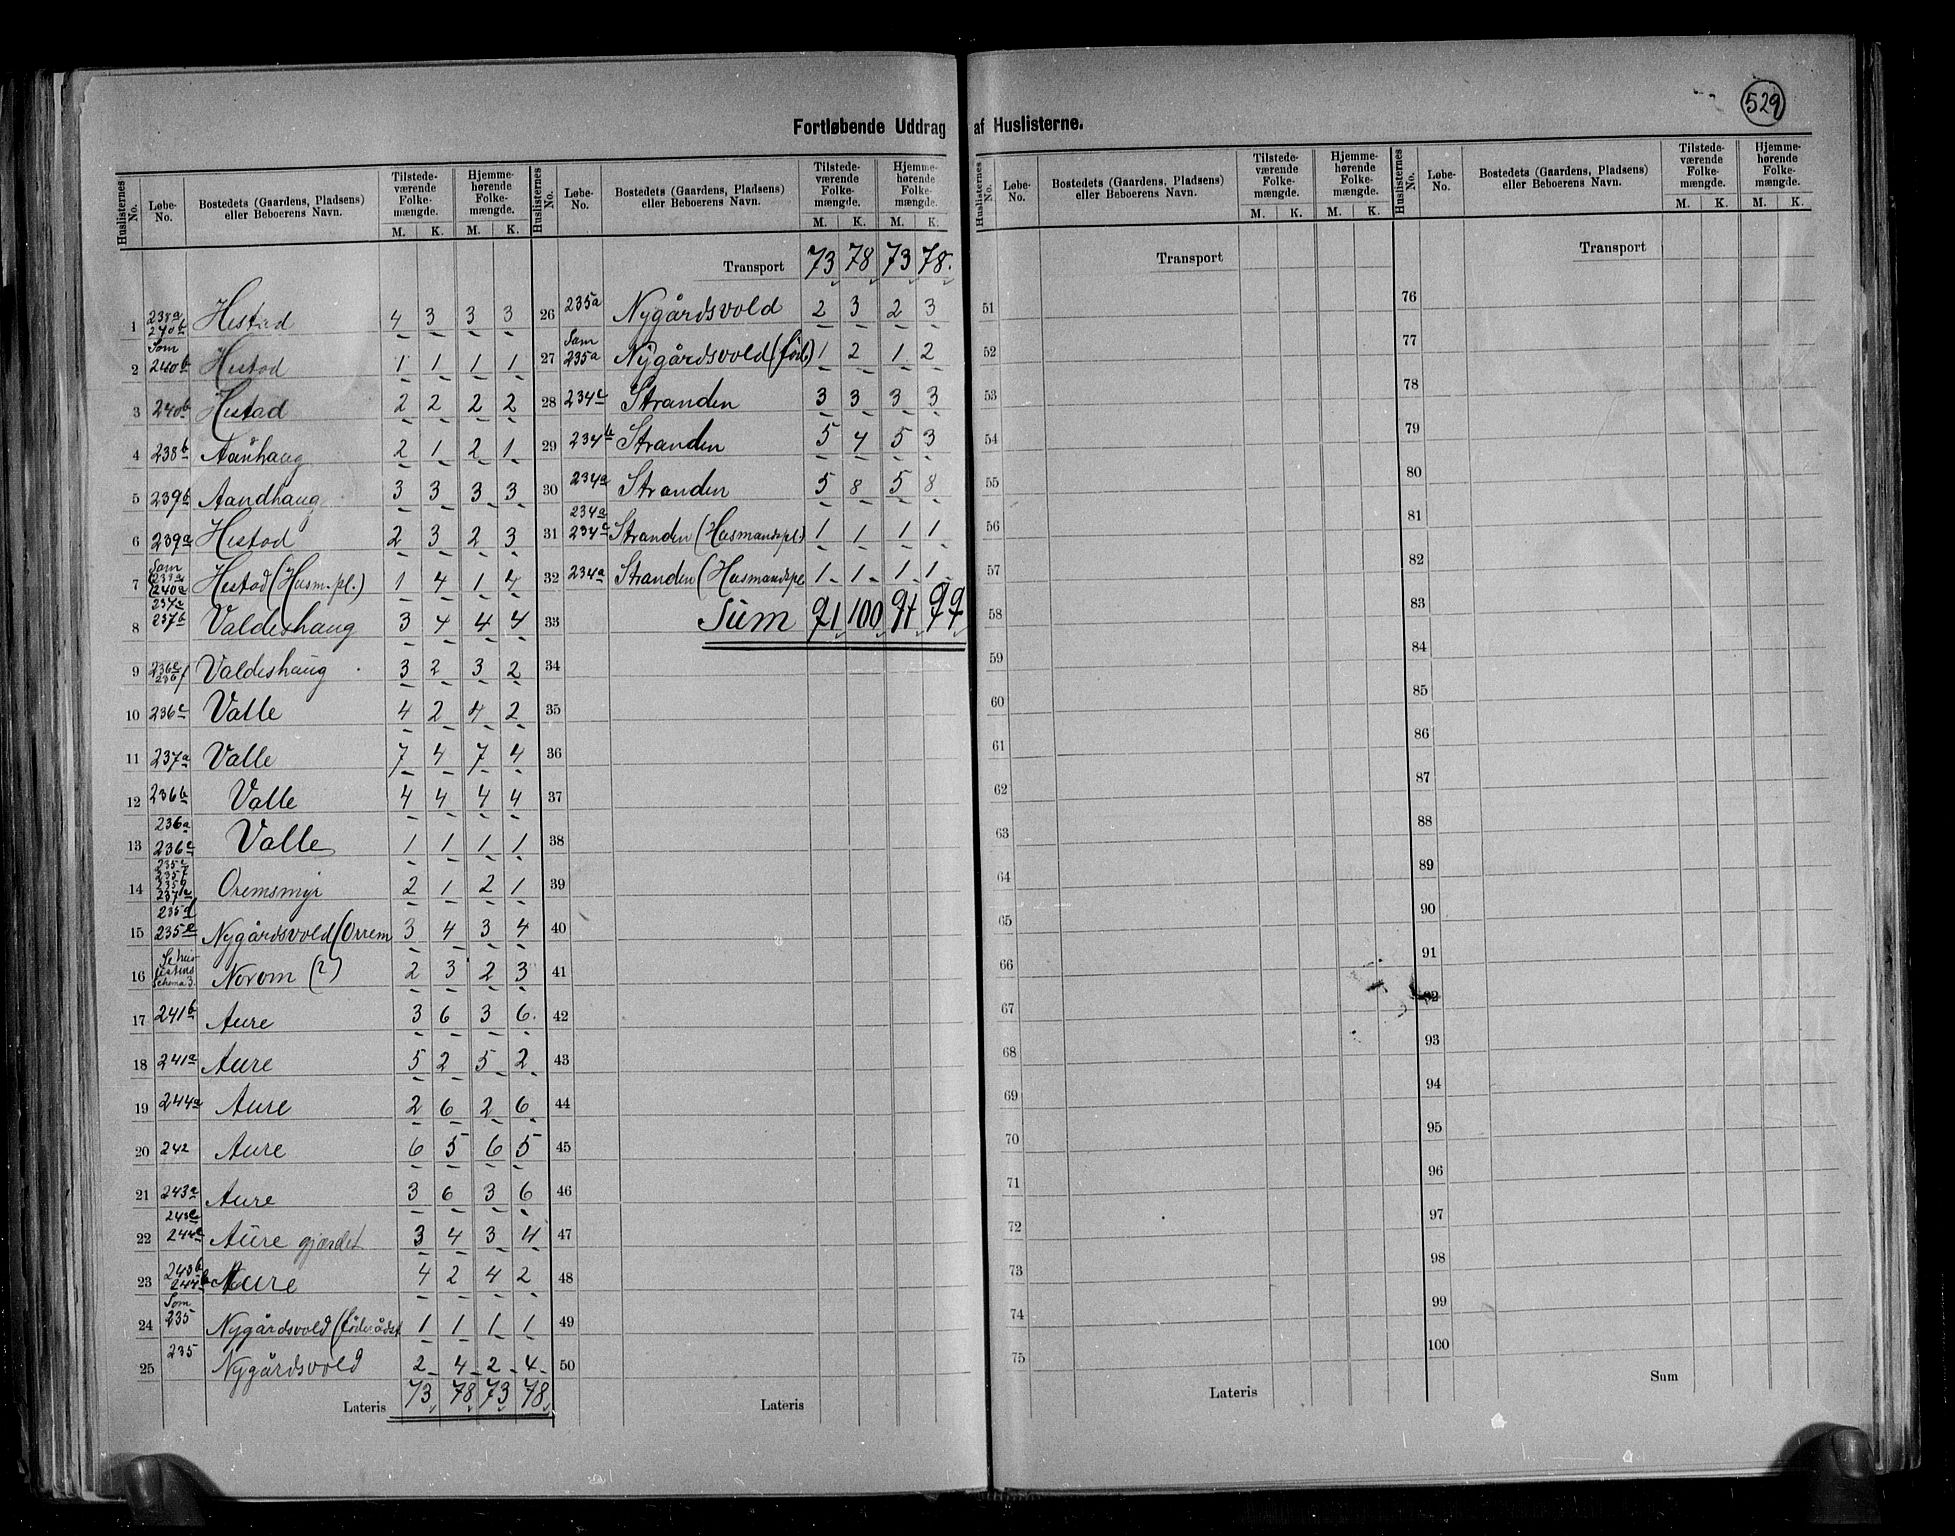 529
Fortløbende Uddrag af Huslisterne.
Huslisternes No. Løbe-No. Bostedets (Gaardens, Pladsens) eller Beboerens Navn. Tilstedeværende Folkemængde. M. K. Hjemmehørende Folkemængde. M. K.
1 238a 240b Hestad 4 3 3 3
2 Som 240b Hestad 1 1 1 1
3 240b Hestad 2 2 2 2
4 238b Aanhaug 2 1 2 1
5 239b Aandhaug 3 3 3 3
6 239a Hestad 2 3 2 3
7 Som 239a 240a Hestad (Husm.pl.) 1 4 1 4
8 237b Valdeshaug 3 4 4 4
9 236e 236f Valdeshaug 3 2 3 2
10 236c Valle 4 2 4 2
11 237a Valle 7 4 7 4
12 236b Valle 4 4 4 4
13 236a 236e Valle 1 1 1 1
14 Oremsmyr 2 1 2 1
15 235d 235e Nygårdsvold (Orrem 3 4 3 4
16 Schema 3. Norom (?) 2 3 2 3
17 241b Aure 3 6 3 6
18 241a Aure 5 2 5 2
19 244a Aure 2 6 2 6
20 242 Aure 6 5 6 5
21 243a Aure 3 6 3 6
22 243c 244c Aure gjærdet 3 4 3 4
23 243b 244b Aure 4 2 4 2
24 Som 235 Nygårdsvold (föderådst 1 1 1 1
25 235 Nygårdsvold 2 4 2 4
Lateris 73 78 73 78
Huslisternes No. Løbe-No. Bostedets (Gaardens, Pladsens) eller Beboerens Navn. Tilstedeværende Folkemængde. M. K. Hjemmehørende Folkemængde. M. K.
Transport 73 78 73 78.
26 235a Nygårdsvold 2 3 2 3
27 Som 235a Nygårdsvold (föd.) 1 2 1 2
28 234c Stranden 3 3 3 3
29 234b Stranden 5 4 5 3
30 234a Stranden 5 8 5 8
31 234a 234c Stranden (Husmandspl.) 1 1 1 1
32 234a Stranden (Husmandspl 1 1 1 1
33 Sum 91 100 91 99
34
35
36
37
38
39
40
41
42
43
44
45
46
47
48
49
50
Lateris
Huslisternes No. Løbe-No. Bostedets (Gaardens, Pladsens) eller Beboerens Navn. Tilstedeværende Folkemængde. M. K. Hjemmehørende Folkemængde. M. K.
Transport
51
52
53
54
55
56
57
58
59
60
61
62
63
64
65
66
67
68
69
70
71
72
73
74
75
Lateris
Huslisternes No. Løbe-No. Bostedets (Gaardens, Pladsens) eller Beboerens Navn. Tilstedeværende Folkemængde. M. K. Hjemmehørende Folkemængde. M. K.
Transport
76
77
78
79
80
81
82
83
84
85
86
87
88
89
90
91
92
93
94
95
96
97
98
99
100
Sum